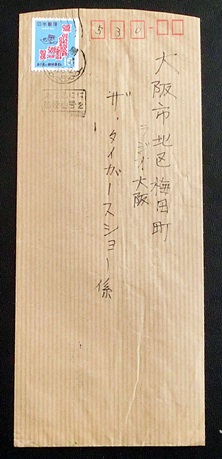 530
大阪市北区梅田町
ラジオ大阪
ザ・タイガースショー係
日本郵便